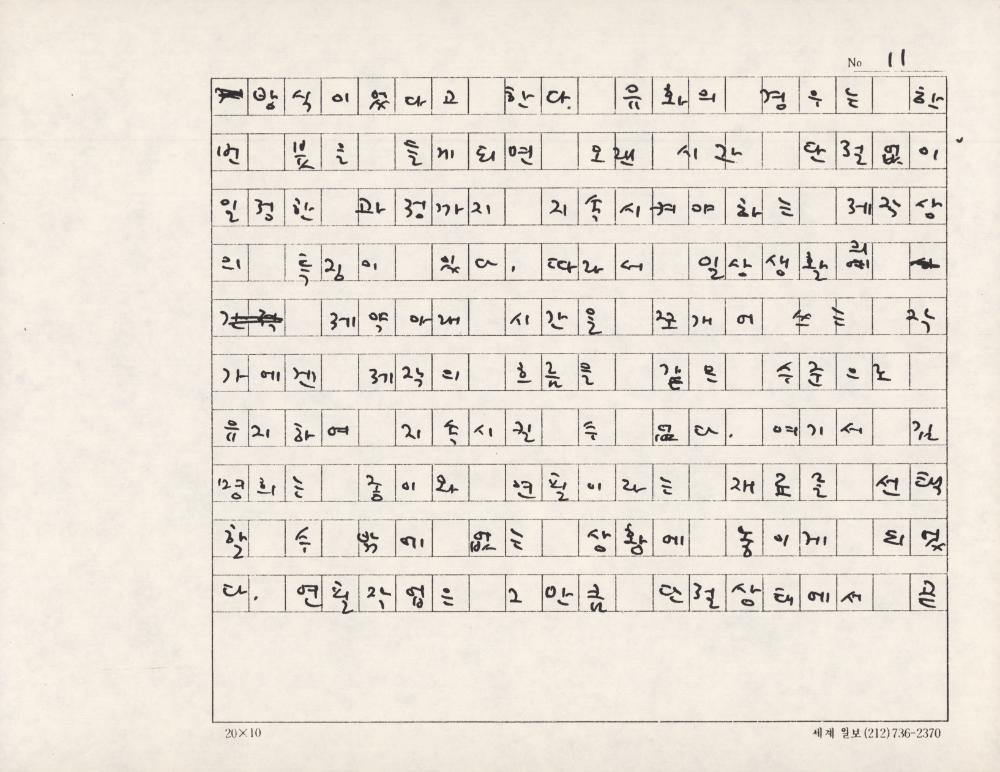 No 11
방식이 었다고 한다. 유화의 경우는 한
번 붓을 들게 되면 오랜 시간 단절없이
일정한 과정까지 지속시켜야 하는 제작상
의 특징이 있다. 따라서 일상생활의
제약 아래 시간을 쪼개어 쓰는 작
가에겐 제작의 흐름을 같은 수준으로
유지하여 지속시킬 수 없다. 여기서 김
명희는 종이와 연필이라는 재료를 선택
할 수 밖에 없는 상황에 놓이게 되었
다. 연필작업은 그만큼 단절상태에서 곧
20×10
세계 일보 (212) 736-2370